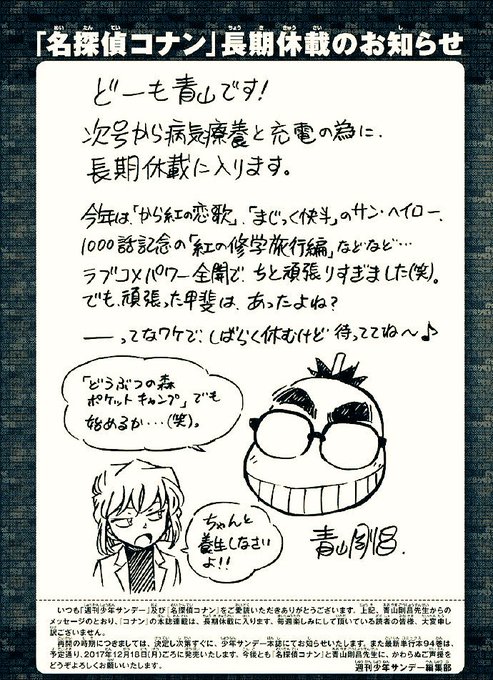 「名探偵コナン」長期休載のお知らせ
どーも青山です！
次号から病気療養と充電の為に、
長期休載に入ります。
今年は、「から紅の恋歌」、「まじっく快斗」のサン・ヘイロー、
1000話記念の「紅の修学旅行編」などなど…
ラブコメパワー全開で、ちと頑張りすぎました(笑)。
でも、頑張った甲斐は、あったよね？
――ってなワケで、しばらく休むけど待っててね〜♪
「どうぶつの森
ポケットキャンプ」でも
始めるか…(笑)。
ちゃんと
養生しなさい
よ!!
青山剛昌.
いつも「週刊少年サンデー」及び「名探偵コナン」をご愛読いただきありがとうございます。上記、青山剛昌先生からの
メッセージのとおり、『コナン』の本誌連載は、長期休載に入ります。毎週楽しみにして頂いている読者の皆様、大変申し
訳ございません。
再開の時期につきましては、決定し次第すぐに、少年サンデー本誌にてお知らせいたします。また最新単行本94巻は、
予定通り、2017年12月18日(月)ごろに発売いたします。今後とも「名探偵コナン」と青山剛昌先生に、かわらぬご声援を
どうぞよろしくお願いいたします。
週刊少年サンデー編集部